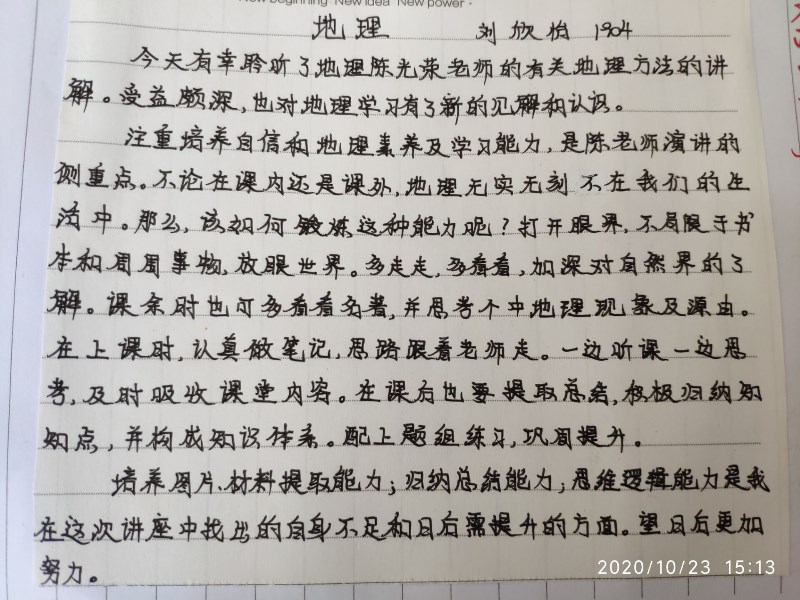 New beginning New idea New power
地理 刘欣怡 1904
今天有幸聆听了地理陈光荣老师的有关地理方法的讲
解。受益颇深,也对地理学习有了新的见解和认识。
注重培养自信和地理素养及学习能力,是陈老师演讲的
侧重点。不论在课内还是课外,地理无实无刻不在我们的生
活中。那么,该如何锻炼这种能力呢?打开眼界,不局限于书
本和周围事物,放眼世界。多走走,多看看,加深对自然界的了
解。课余时也可多看看名著,并思考个中地理现象及源由。
在上课时,认真做笔记,思路跟着老师走。一边听课一边思
考,及时吸收课堂内容。在课后也要提取总结,积极归纳知
知点,并构成知识体系。配上题组练习,巩固提升。
培养图片、材料提取能力;归纳总结能力;思维逻辑能力是我
在这次讲座中找出的自身不足和日后需提升的方面。望日后更加
努力。
2020/10/23 15:13